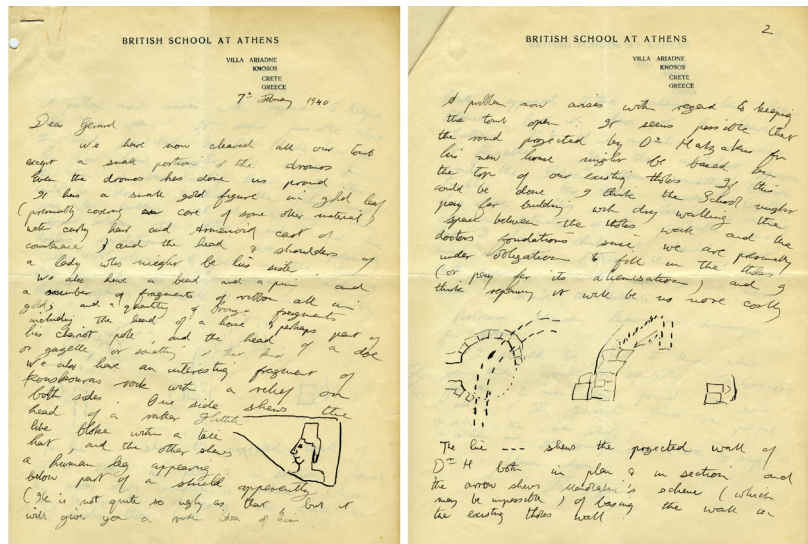 BRITISH SCHOOL AT ATHENS
VILLA ARIADNE
KNOSOS
CRETE
GREECE
7th February 1940
Dear Gerard
We have now cleared all our tomb
except a small portion of the dromos.
Even the dromos has done us proud
It has a small gold figure in gold leaf
(presumably covering core of some other material)
with curly hair and Armenoid cast of
countenance & and the head & shoulders of
a lady who might be his sister
We also have a bead and a pin and
a number of fragments of ribbon all in
gold, and a quantity of bronze fragments
including the head of a horse & perhaps part of
his chariot pole, and the head of a doe
or gazelle or
We also have an interesting fragment of
Kouskouras rock with a relief on
both sides. One side shews the
head of a rather Hittite
like bloke with a tall
hat, and the other shews
a human leg appearing
below part of a shield apparently
(He is not quite so ugly as that, but it
will give you a rough idea of him
2
BRITISH SCHOOL AT ATHENS
VILLA ARIADNE
KNOSOS
CRETE
GREECE
A problem now arises with regard to keeping
the tomb open. It seems possible that
the road projected by Dr for
his new home might be based on
the top of our existing tholos. If this
could be done I think the School might
pay for building with dry walling the
space between the tholos wall and the
doctors foundations since we are presumably
under obligation to fill in the tholos
(or pay for its alienisation) and I
think repairing it will be no more costly
The line --- shews the projected wall of
Dr H both in plan & in section and
the arrow shews scheme (which
may be impossible) of basing the wall on
the existing tholos wall